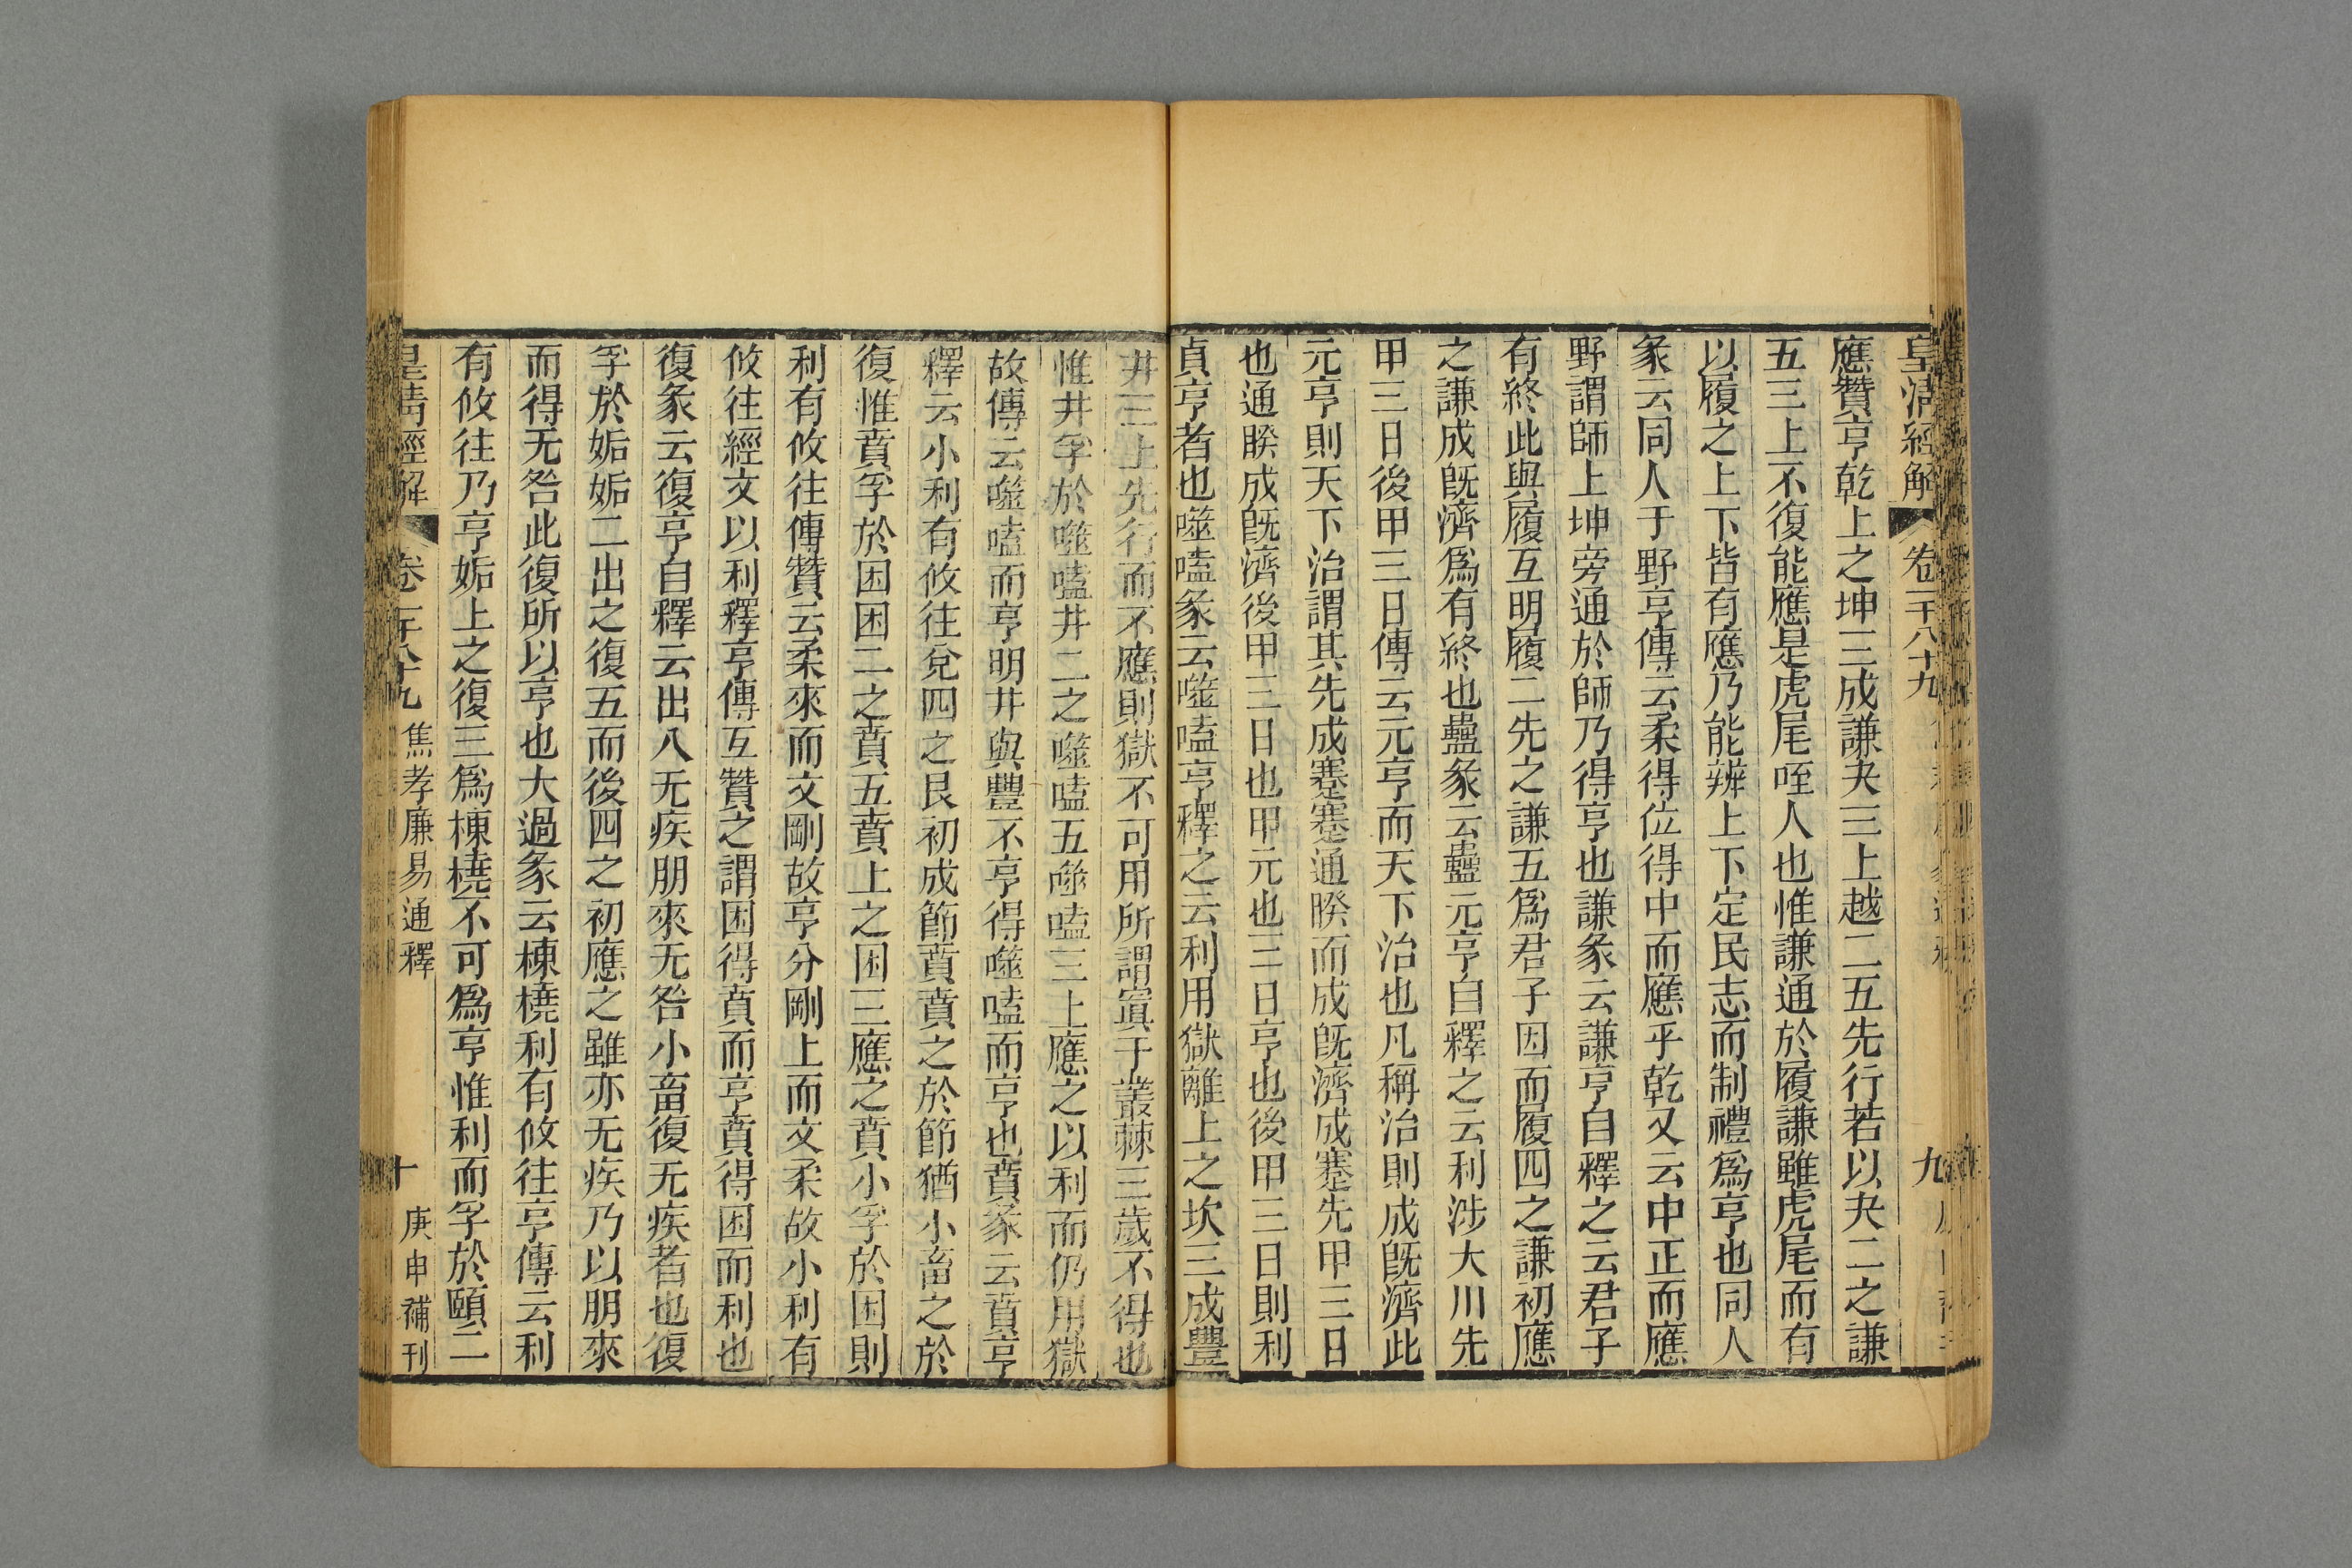 皇清經解 卷一千八十九 九
應贊亨乾上之坤三成謙夬三上越二五先行若以夬二之謙
五三上不復能應是虎尾咥人也惟謙通於履謙雖虎尾而有
以履之上下皆有應乃能辨上下定民志而制禮爲亨也同人
彖云同人于野亨傳云柔得位得中而應乎乾又云中正而應
野謂師上坤旁通於師乃得亨也謙彖云謙亨自釋之云君子
有終此與履互明履二先之謙五爲君子因而履四之謙初應
之謙成旣濟爲有終也蠱彖云蠱元亨自釋之云利涉大川先
甲三日後甲三日傳云元亨而天下治也凡稱治則成旣濟此
元亨則天下治謂其先成蹇蹇通睽而成旣濟成蹇先甲三日
也通睽成旣濟後甲三日也甲元也三日亨也後甲三日則利
貞亨者也噬嗑彖云噬嗑亨釋之云利用獄離上之坎三成豐
井三上先行而不應則獄不可用所謂寘于叢棘三歲不得也
惟井孚於噬嗑井二之噬嗑五噬嗑三上應之以利而仍用獄
故傳云噬嗑而亨明井與豐不亨得噬嗑而亨也賁彖云賁亨
釋云小利有攸往兌四之艮初成節賁賁之於節猶小畜之於
復惟賁孚於困困二之賁五賁上之困三應之賁小孚於困則
利有攸往傳贊云柔來而文剛故亨分剛上而文柔故小利有
攸往經文以利釋亨傳互贊之謂困得賁而亨賁得困而利也
復彖云復亨自釋云出入无疾朋來无咎小畜復无疾者也復
孚於姤姤二出之復五而後四之初應之雖亦无疾乃以朋來
而得无咎此復所以亨也大過彖云棟橈利有攸往亨傳云利
有攸往乃亨姤上之復三爲棟橈不可爲亨惟利而孚於頤二
皇清經解 卷一千八十九 焦孝廉易通釋 十 庚申補刊